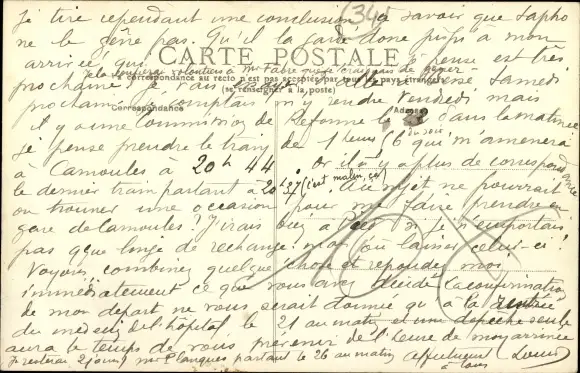 (345
je tire cependant une conclusion à savoir que Sapho
ne le gêne pas. Qu'il la garde donc jusqu'à mon
arrivée, qui je pense est très
CARTE POSTALE
je la confierai volontiers à Mr Fabre que je craignais de gêner
La correspondance au recto n'est pas acceptée par tous les pays étrangers
(se renseigner à la poste)
prochaine, je vais samedi
Correspondance
Adresse
prochain. Je comptais m'y rendre vendredi mais
il y a une Commission de Réforme le dans la matinée
je pense prendre le train de 1 heure 6 qui m'amènera
du soir
à Carnoules à 20h 44. Or il n'y a plus de correspondance
le dernier train partant à 20h 27 (c'est malin, ça). Auguste ne pourrait
on trouver une occasion pour me faire prendre en
gare de Carnoules? J'irais bien à pied si je n'emportais
pas que linge de rechange mais où laisser celui-ci
Voyons, combinez quelque chose et répondez moi
immédiatement ce que vous avez décidé. La confirmation
de mon départ ne vous serait donnée qu'à la rentrée
du médecin de l'hôpital le 21 au matin et une dépêche seule
aura le temps de vous prévenir de l'heure de mon arrivée
Je resterai 2 jours Mr partant le 26 au matin Affectueusement
à tous
Louis